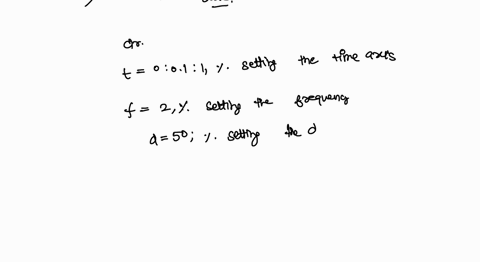 t = 0 : 0.1 : 1, %. setting the time axes
f = 2, %. setting the frequency
d = 50; %. setting the d